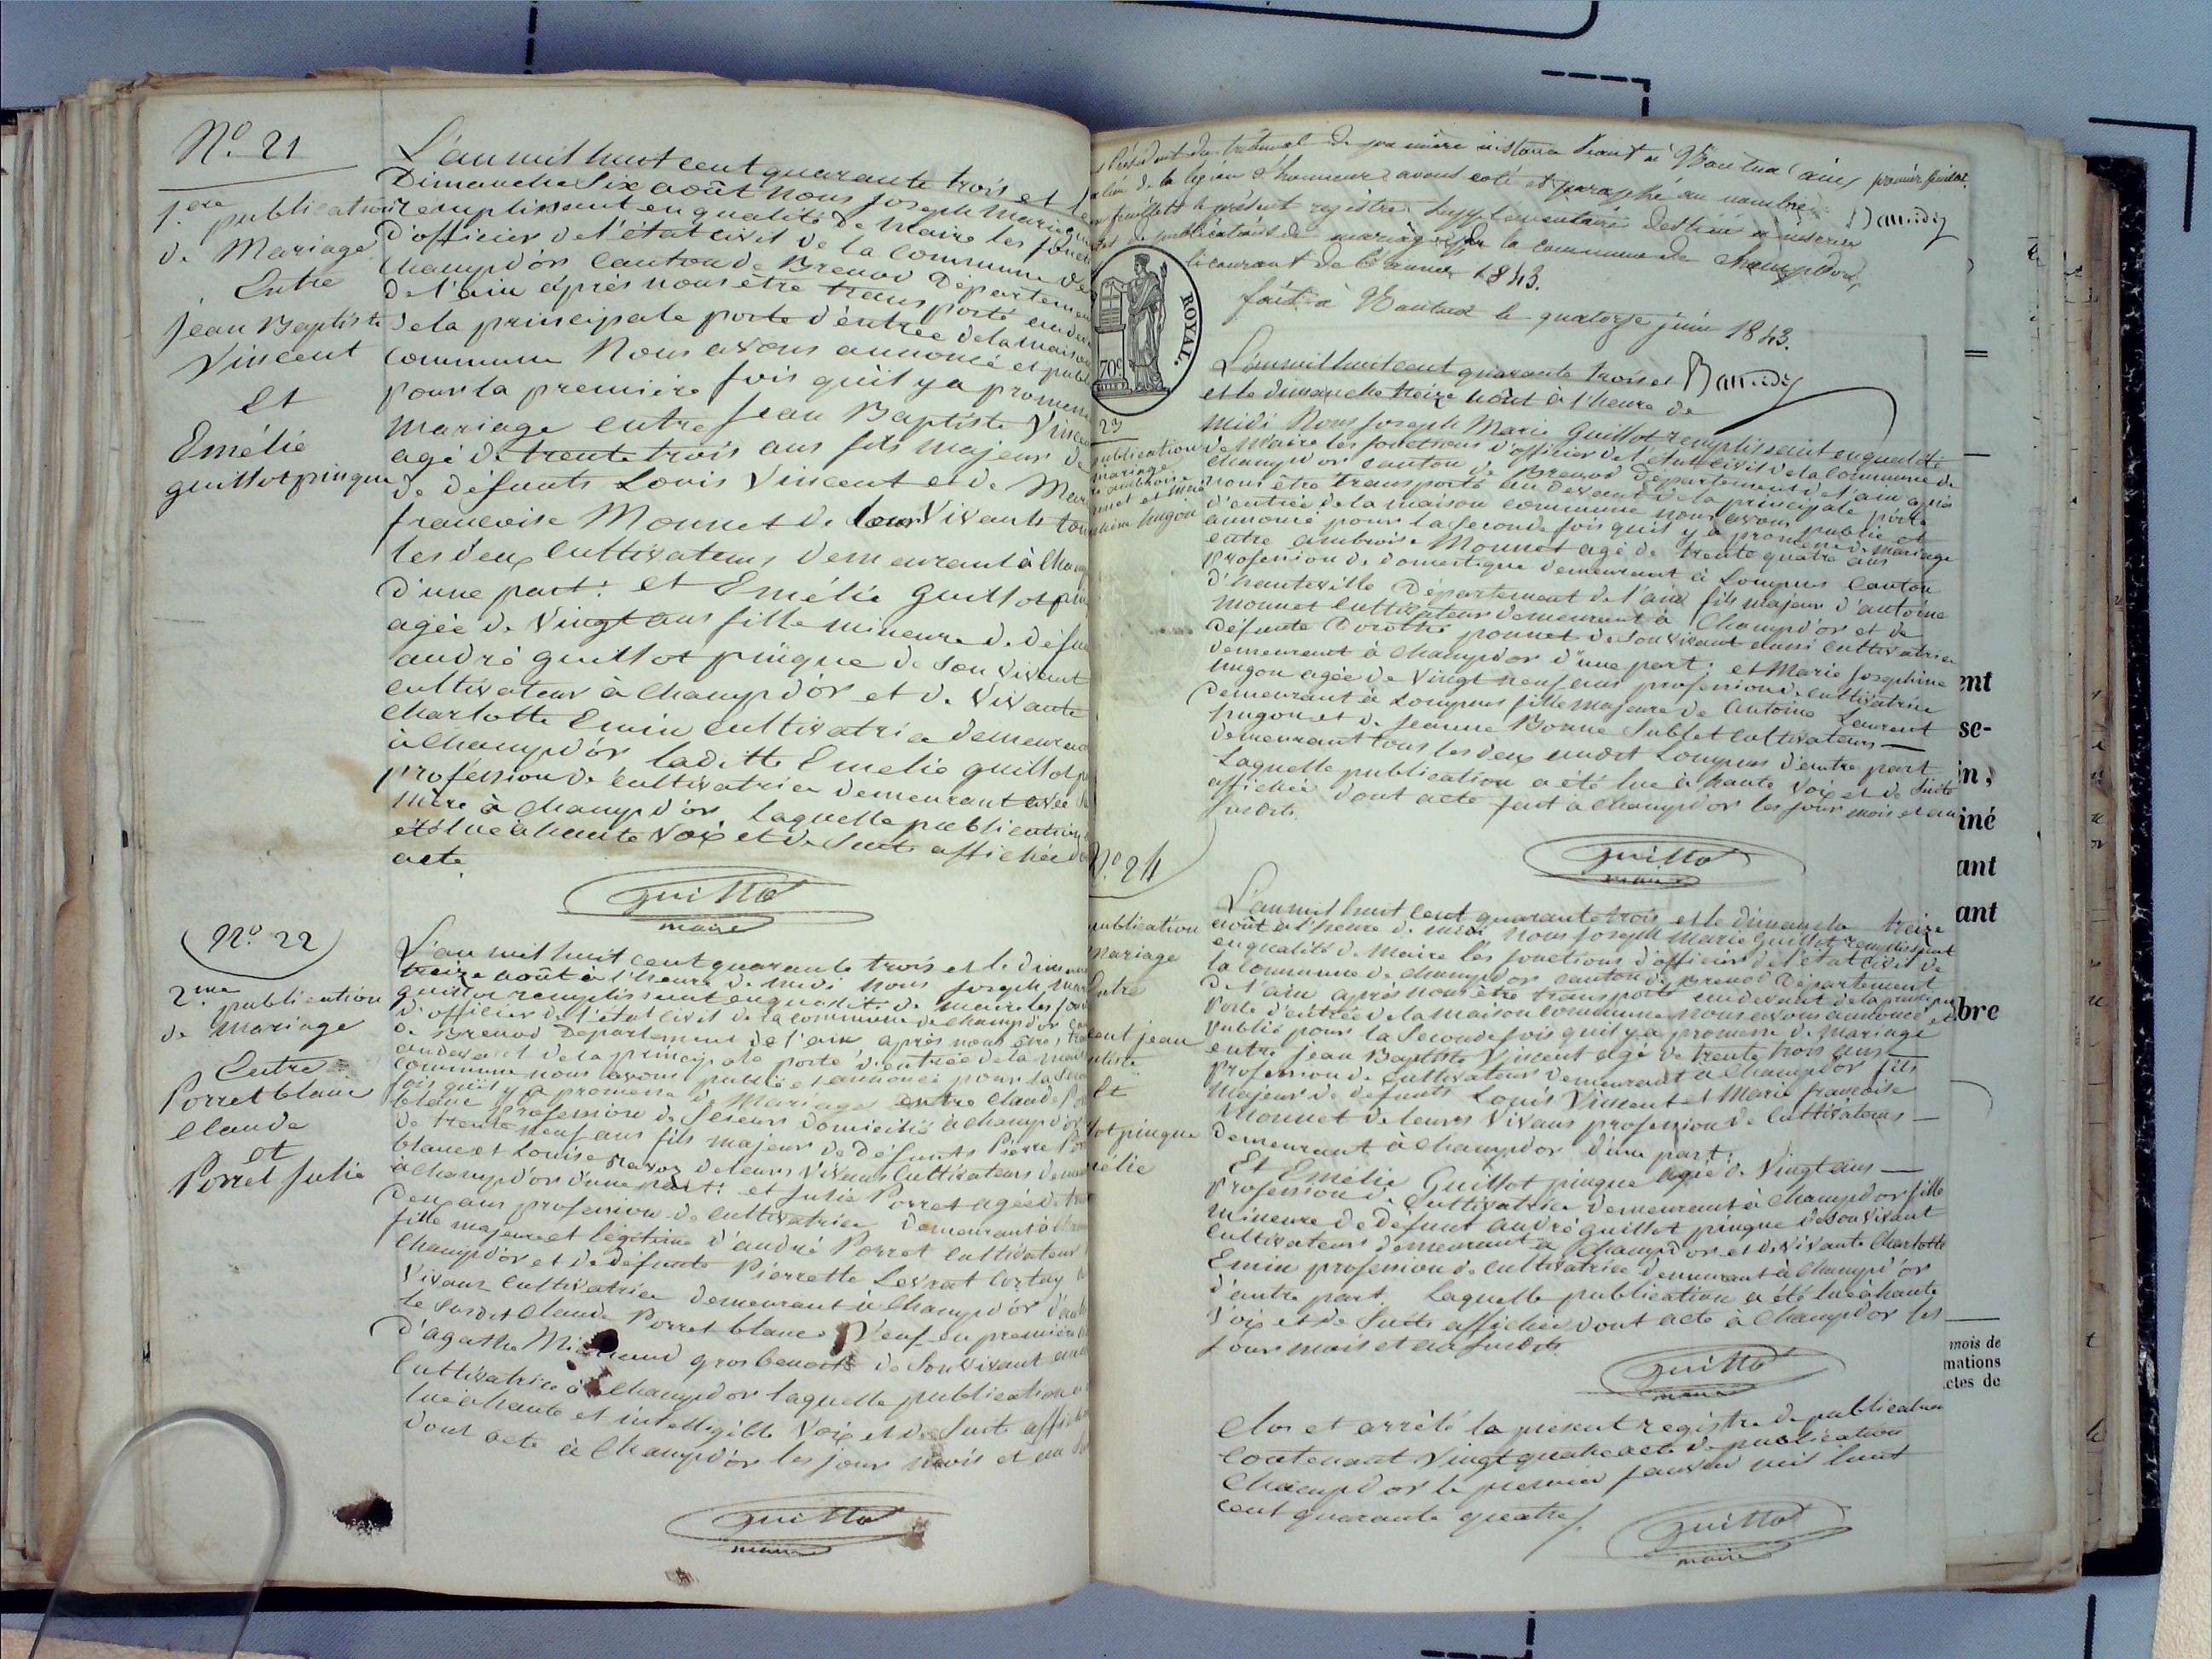 N° 21
1ere publication
de Mariage
Entre
Jean Baptiste
Vincent
Et
Emélie
guillot pinque
L'an mil huit cent quarante trois et le
Dimanche Six août Nous Joseph Marie
remplissant en qualité de Maire les fonct
d'officier de l'état civil de la Commune de
Champd'or Canton de Brenod Departement
de l'ain après nous être transporté au devant
de la principale porte d'entrée de la maison
commune Nous avons annoncé et publ
pour la première fois qu'il y a promesse
mariage entre Jean Baptiste Vincent
agé de trente trois ans fils majeur de
de défunts Louis Vincent et de Mar
francoise Monnet de leur Vivants tous
les deux Cultivateurs demeurant à Champ
d'une part: et Emélie Guillot pin
agée de Vingt ans fille mineure de défu
andré guillot pinque de son vivant
cultivateur à Champd'or et de Vivante
Charlotte Emin cultivatrice demeurant
à Champd'or laditte Emelie guillot p
profession de cultivatrice demeurant avec sa
mère à Champd'or laquelle publication
été lue à haute Voix et de Suite affichée d
acte.
Guillot
maire
N° 22
2me publication
de Mariage
Entre
Porret blanc
Claude
et
Porret Julie
L'an mil huit cent quarante trois et le diman
treize août à l'heure de midi nous Joseph Mar
guillot remplissant en qualité de maire les fon
d'officier de l'état civil de la commune de Champd'or can
de Brenod Departement de l'ain après nous être tra
au devant de la principale porte d'entrée de la mais
commune nous avons publié et annoncé pour la seco
fois qu'il y a promesse de Mariage entre Claude Po
blanc profession de Scieur domicilié à Champd'or
de trente neuf ans fils majeur de défunts Pierre Por
blanc et Louise Ravoz de leurs Vivans Cultivateurs demeu
à Champd'or d'une part: et Julie Porret agée de tren
deux ans profession de Cultivatrice demeurant à
fille majeure et légitime d'andré Porret Cultivateur
Champd'or et de défunte Pierrette Levrat Cortay
Vivant Cultivatrice demeurant à Champd'or d'aut
le Susdit Claude Porret blanc Veuf en première
d'agathe Michaud grosbenoit de Son vivant
Cultivatrice à Champd'or laquelle publication a
lue à haute et intelligible Voix et de Suite affich
dont acte à Champd'or les jour mois et an
Guillot
maire
Président du tribunal de première instance séant à Nantua (ain) premier feuillet
de la légion d'honneur avons coté et paraphé au nombre
feuillets le présent registre Supplémentaire destiné à inscrire
de publications de mariage de la commune de Champdor,
le courant de l'année 1843.
fait à Nantua le quatorze juin 1843.
ROYAL.
70c
23
publication
mariage
ambroise
et
hugon
L'an mil huit cent quarante trois et
et le dimanche treize août à l'heure de
midi Nous Joseph Marie Guillot remplissant en qualité
de Maire les fonctions d'officier de l'état civil de la Commune de
Champd'or canton de Brenod Departement de l'ain après
nous être transporté au devant de la principale porte
d'entrée de la maison commune nous avons publié et
annoncé pour la seconde fois qu'il y a promesse de mariage
entre ambroise Monnet agé de trente quatre ans
profession de domestique demeurant à Lompnes Canton
d'hauteville Département de l'ain fils majeur d'antoine
Monnet Cultivateur demeurant à Champd'or et de
défunte Dorothé ponnet de Son vivant aussi Cultivatrice
demeurant à Champd'or d'une part: et Marie Josephine
hugon agée de Vingt neuf ans profession de Cultivatrice
demeurant à Lompnes fille majeure de Antoine Laurent
hugon et de Jeanne Bonne Sublet Cultivateurs
demeurant tous les deux audit Lompnes d'autre part
Laquelle publication a été lue à haute voix et de Suite
affichée dont acte fait à Champd'or les jour mois et an
Susdits.
Guillot
maire
N° 24
publication
Mariage
Entre
jean
Et
pinque
L'an mil huit cent quarante trois et le dimanche treize
août à l'heure de midi nous Joseph Marie Guillot remplissant
en qualité de Maire les fonctions d'officier de l'état civil de
la Commune de Champd'or canton de Brenod Département
de l'ain après nous être transporté au devant de la principale
Porte d'entrée de la maison Commune nous avons annoncé et
publié pour la Seconde fois qu'il y a promesse de mariage
entre Jean Baptiste Vincent agé de trente trois ans
Profession de Cultivateur demeurant à Champd'or fils
majeur de defunts Louis Vincent et Marie francoise
Monnet de leurs Vivans profession de Cultivateurs
demeurant à Champd'or d'une part:
Et Emélie Guillot pinque agée de Vingt ans
Profession de Cultivatrice demeurant à Champd'or fille
mineure de défunt andré guillot pinque de son vivant
Cultivateur demeurant à Champd'or et de vivante Charlotte
Emin profession de Cultivatrice demeurant à Champd'or
d'autre part. Laquelle publication a été lue à haute
Voix et de Suite affichée dont acte à Champd'or les
Jour mois et an Susdits.
Guillot
maire
Clos et arrêté le présent registre de publication
Contenant Vingt quatre acte de publication
Champd'or le premier Janvier mil huit
cent quarante quatre.
Guillot
maire
ent
se-
in,
iné
ant
ant
bre
mois de
mations
actes de